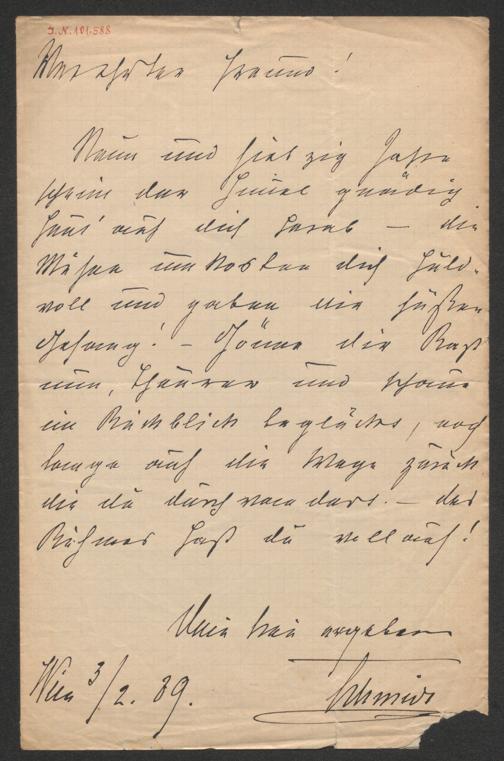 J.N. 101.588
Verehrter Freund!
Neun und siebzig Jahre
schein der Himel gnädig
heut' auf dich herab — die
Musen umkosten dich huld-
voll und gaben dir süßen
Gesang! — Gönne dir Rast
nun, Theurer und schaue
im Rückblick beglückt, noch
lange auf die Wege zurück
die du durchwandert. — des
Ruhmes hast du vollauf!
Dein treu ergebener
Wien 3/2. 89.
Schmidt